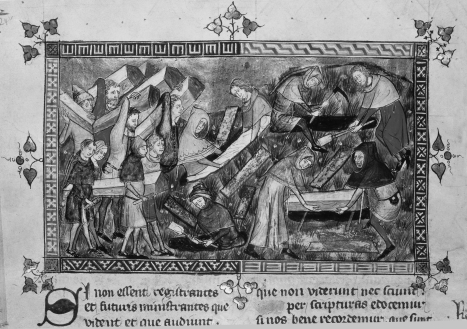 Si non essent registrantes
et futuris ministrantes que
vident et que audiunt .
que non viderunt nec sciunt
per scripturas edocemur
si nos bene recordemur que sunt